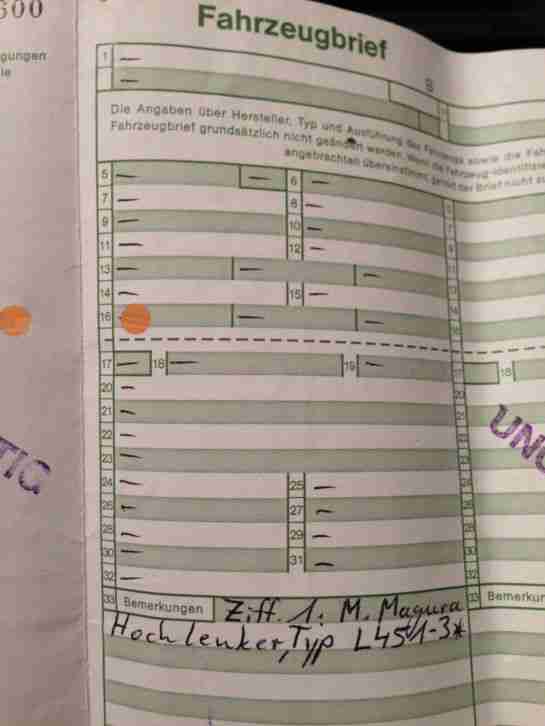 600
Fahrzeugbrief
gungen
ie
1 —
—
Die Angaben über Hersteller, Typ und Ausführung des Fahrzeugs sowie die Fah
Fahrzeugbrief grundsätzlich nicht geändert werden. Wenn die Fahrzeug-Identifizie
angebrachten übereinstimmt, gehört der Brief nicht zu
5 — — 6 —
7 — 8 —
9 — 10 —
11 — 12 —
13 — — —
14 — 15 —
16 — —
17 — 18 — 19 — 18
20 —
21 —
22 —
23 —
24 — 25 —
26 — 27 —
28 — 29 —
30 — 31 —
32 —
33 Bemerkungen Ziff. 1: M. Magura 33 Bemerkun
Hochlenker, Typ L451-3*
TIG
UNG